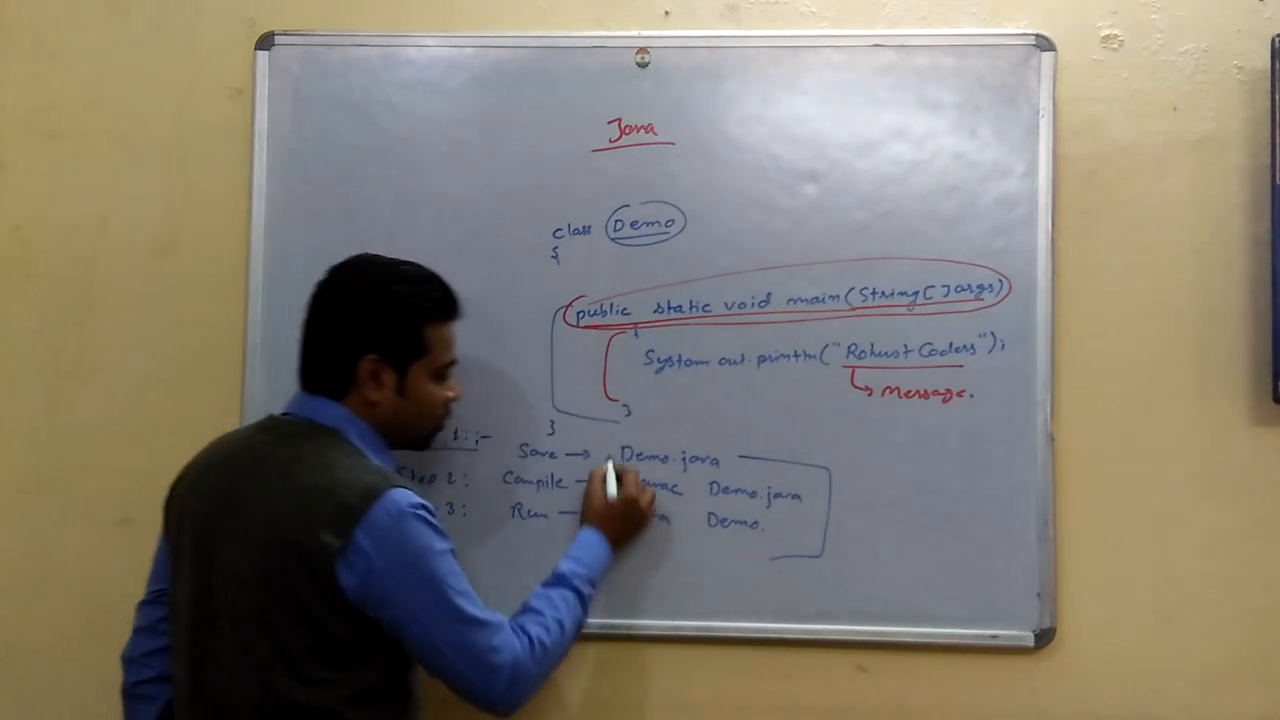 Java
class Demo
{
public static void main(String[] args)
{
System.out.println("Robust Coders");
→ Message.
}
}
1:-
Save → Demo.java
Step 2: Compile javac Demo.java
3: Run Demo.